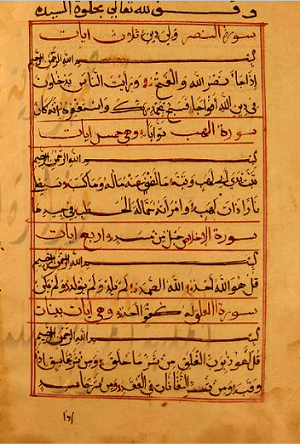 وقف لله تعالى
سورة النصر ثلاث ايات
بسم الله الرحمن الرحيم
اذا جاء نصر الله والفتح ورايت الناس يدخلون
في دين الله افواجا فسبح بحمد ربك واستغفره انه كان
توابا سورة اللهب وهي خمس ايات
بسم الله الرحمن الرحيم
تبت يدا ابي لهب وتب ما اغنى عنه ماله وما كسب سيصلى
نارا ذات لهب وامراته حمالة الحطب في جيدها
حبل من مسد سورة الاخلاص اربع ايات
بسم الله الرحمن الرحيم
قل هو الله احد الله الصمد لم يلد ولم يولد ولم يكن
له كفوا احد سورة الفلق وهي ايات
بسم الله الرحمن الرحيم
قل اعوذ برب الفلق من شر ما خلق ومن شر غاسق اذا
وقب ومن شر النفاثات في العقد ومن شر حاسد